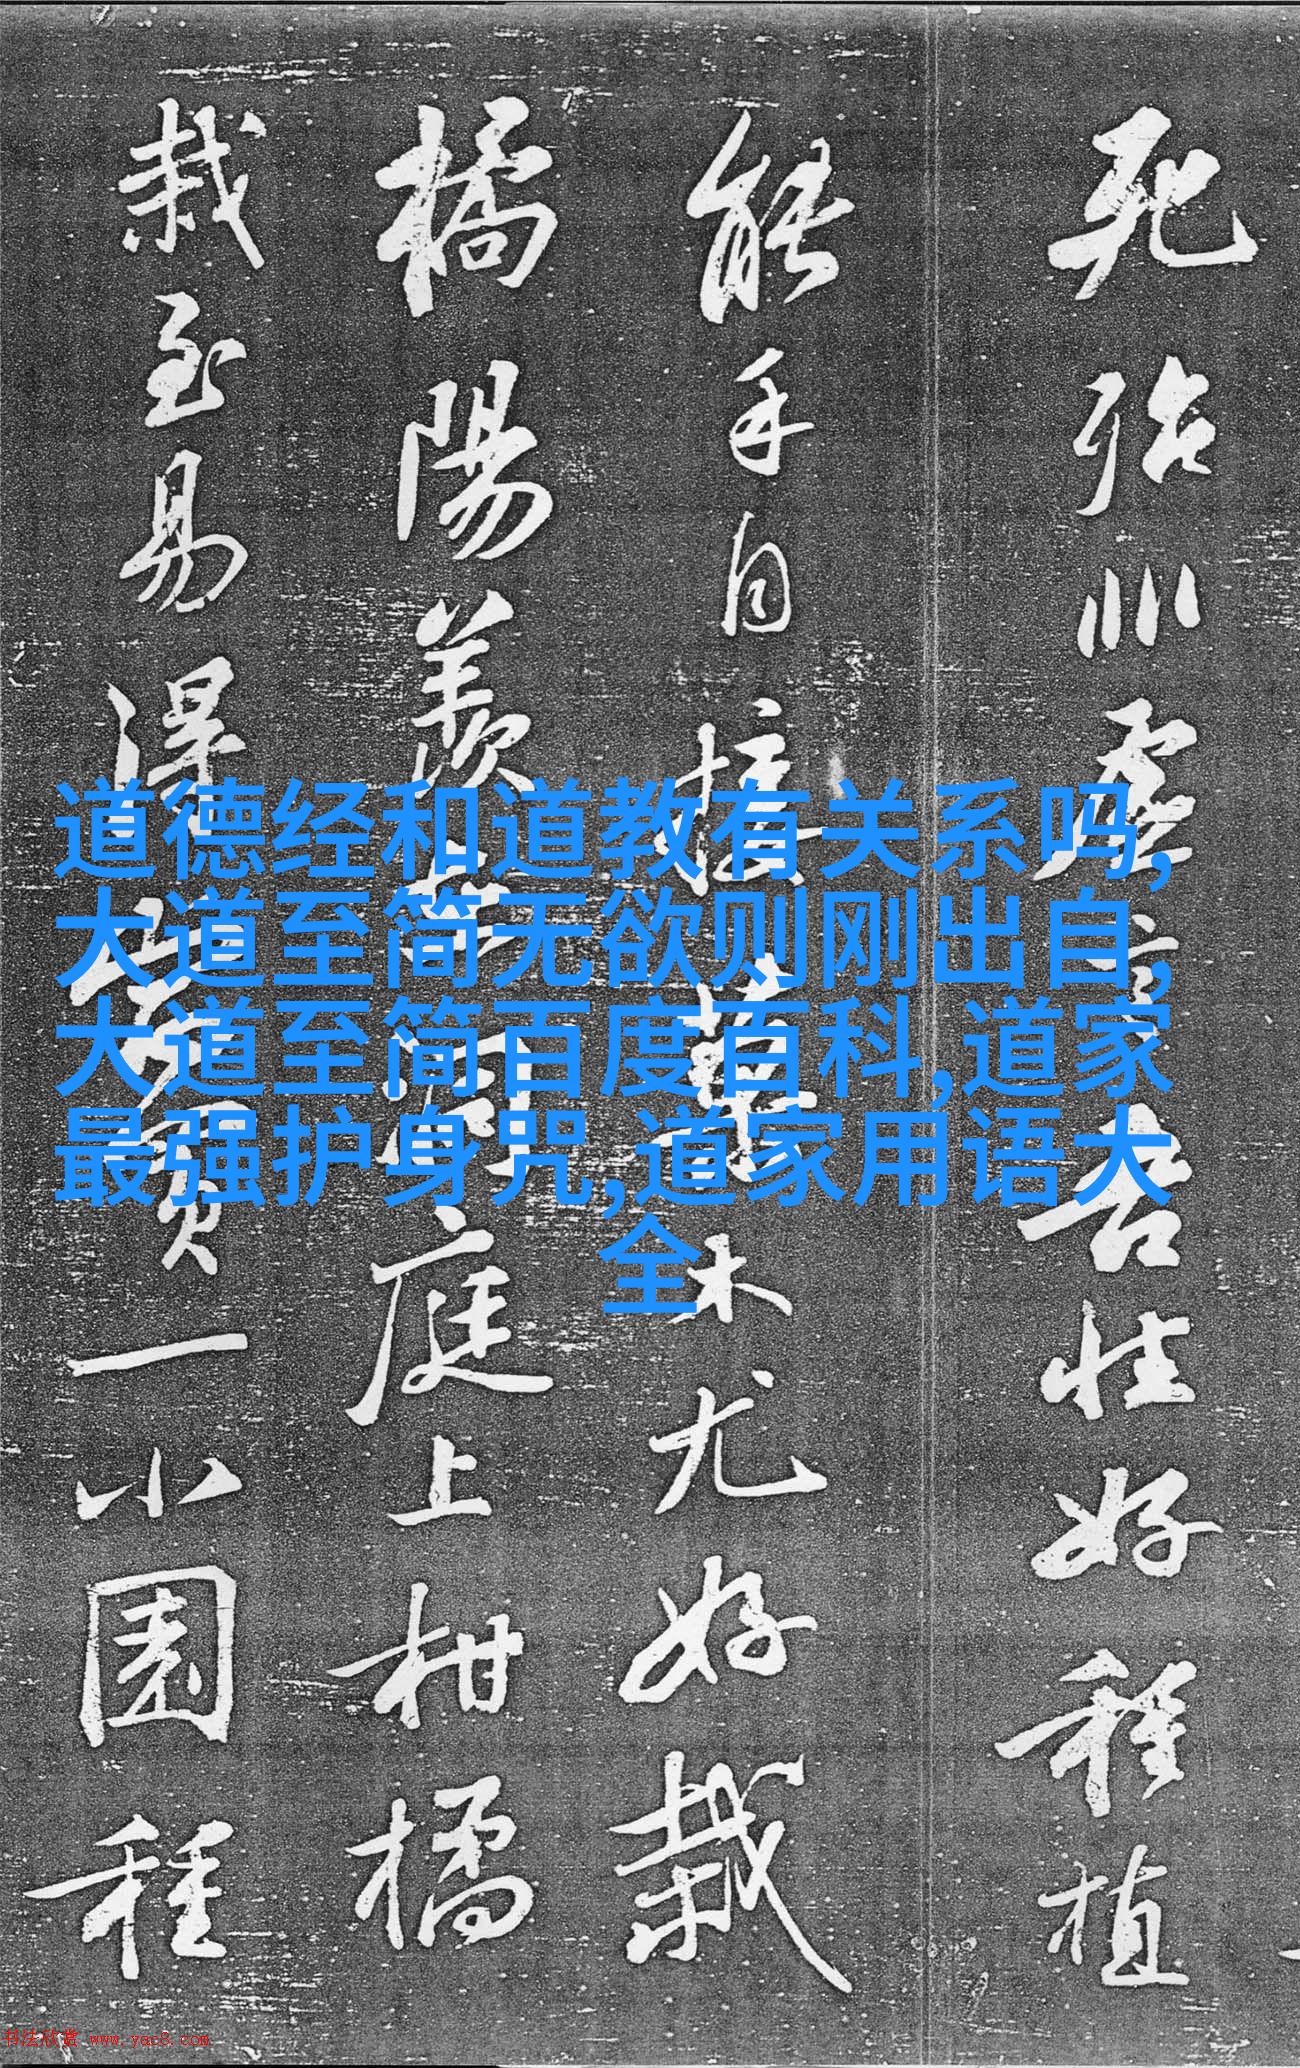 死殆非虚言吾性好種植
能手自接菓木尤好栽
橘陽羨在洞庭上柑橘
栽至易得當買一小園種
道德经和道教有关系吗,
大道至简无欲则刚出自,
大道至简百度百科,道家
最强护身咒,道家用语大
全
书法欣赏 www.yac8.com